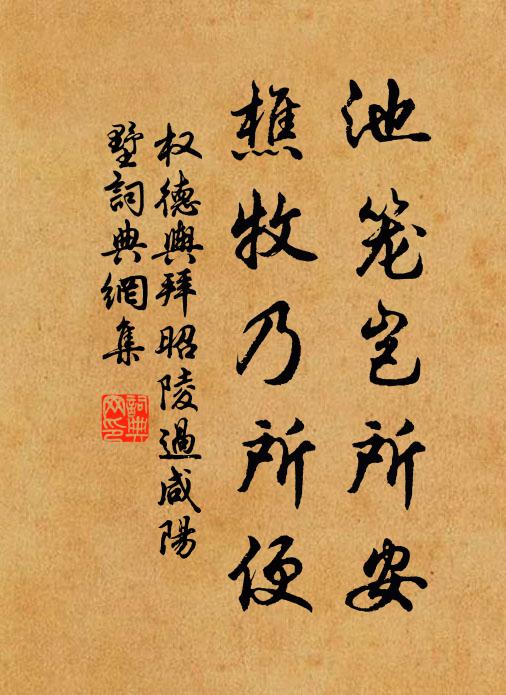 池笼岂所安
樵牧乃所便
权德舆拜昭陵過咸陽
墅詞典網集
詞典
网印